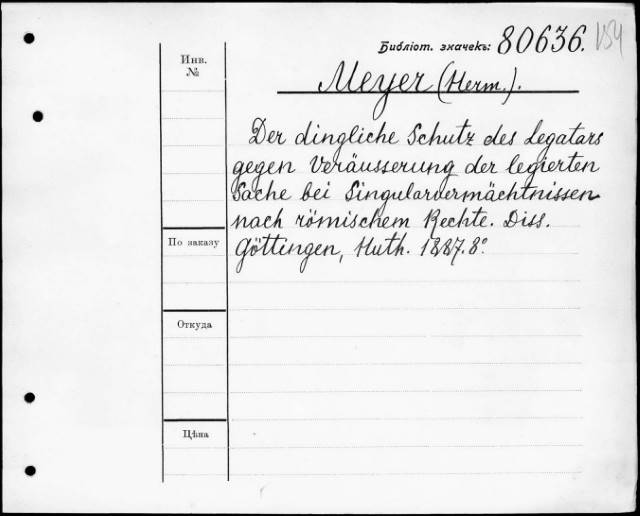 Библіот. значекъ: 80636.
Инв.
№
Meyer (Herm.).
Der dingliche Schutz des Legatars
gegen Veräusserung der legierten
Sache bei Singularvermächtnissen
nach römischem Rechte. Diss.
Göttingen, Huth. 1887. 8°.
По заказу
Откуда
Цѣна